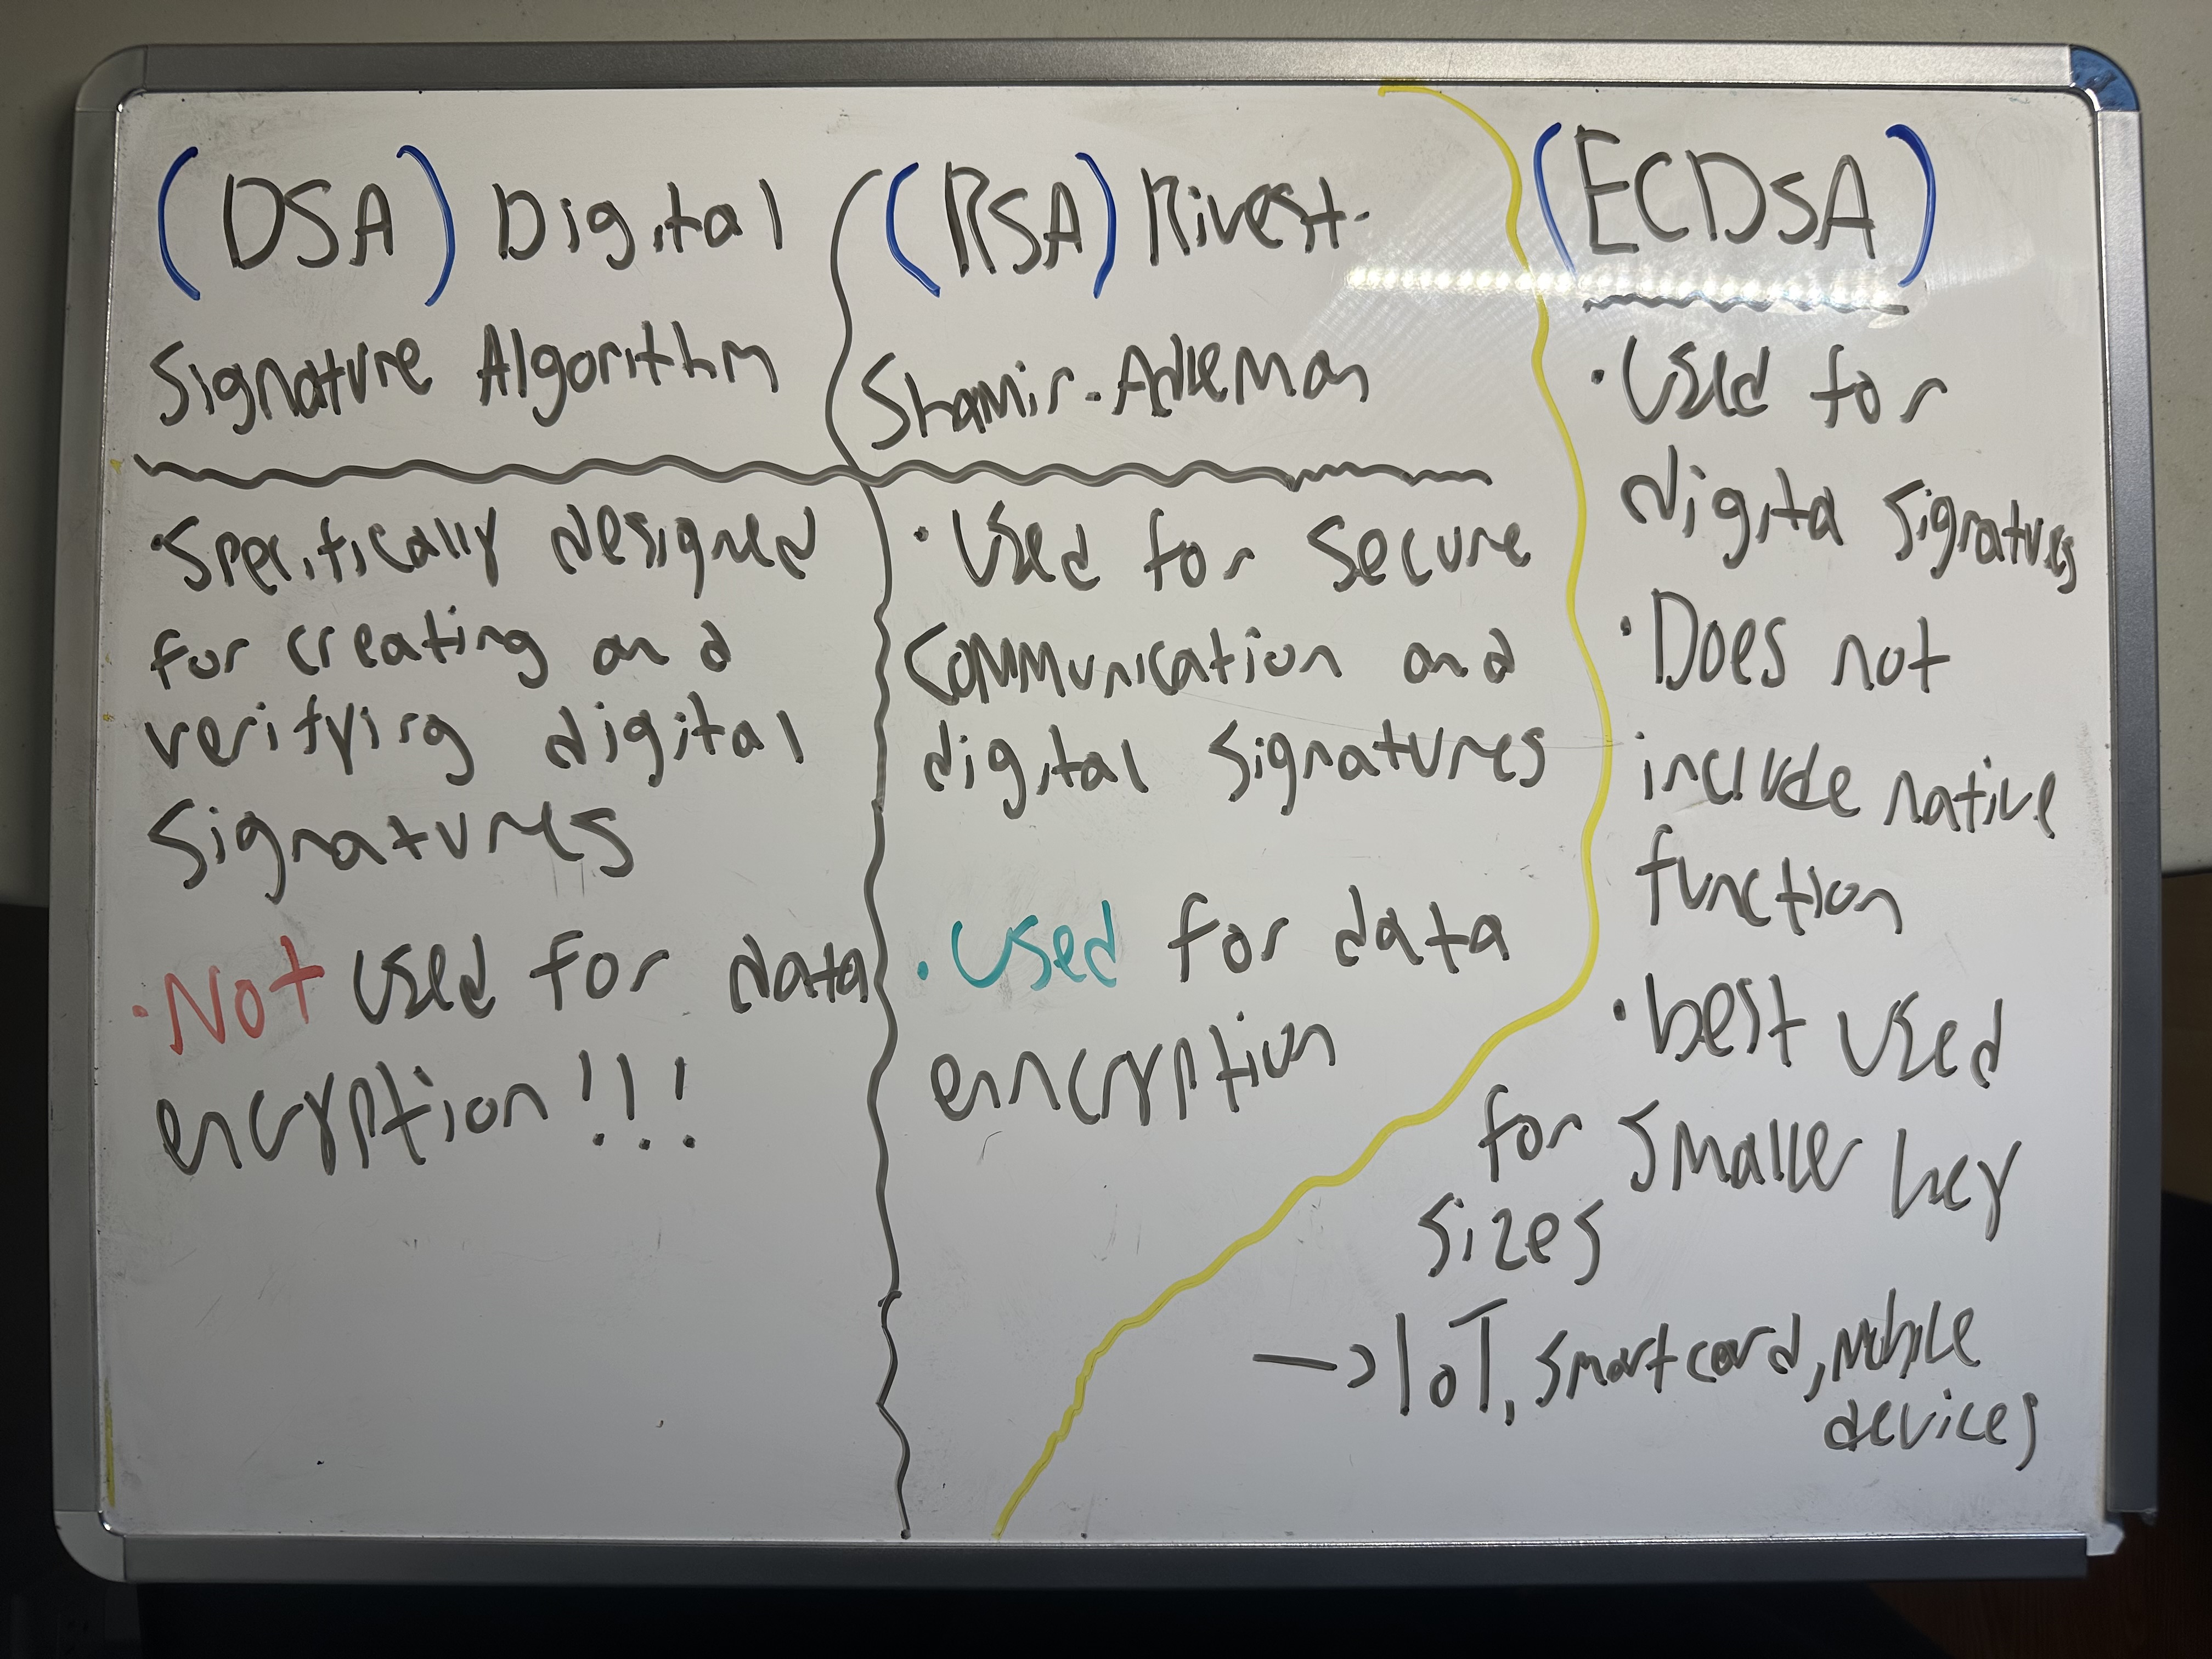 (DSA) Digital
Signature Algorithm
·Specifically designed
for creating and
verifying digital
signatures
·Not used for data
encryption!!!
(RSA) Rivest-
Shamir-Adleman
·Used for secure
communication and
digital signatures
·Used for data
enncryption
(ECDSA)
·Used for
digita signatures
·Does not
include native
function
·best used
for smaller key
sizes
→IoT, smartcard, mobile
devices